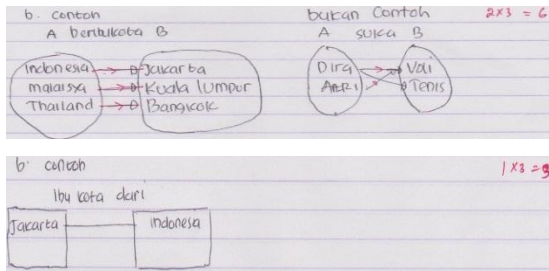 b. contoh
A beribukota B
Indonesia Jakarta
malaisya Kuala lumpur
Thailand Bangkok
bukan Contoh 2x3 = 6
A suka B
Dira Voli
Tenis
b. contoh 1x3 = 3
Ibu kota dari
Jakarta Indonesa